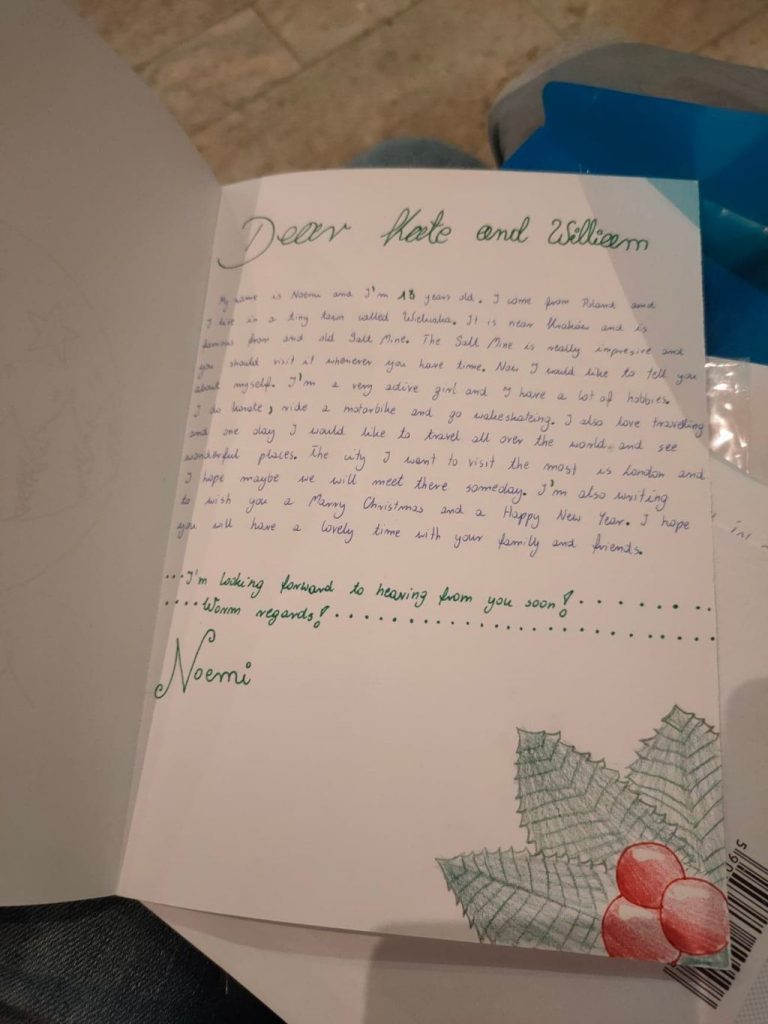 Dear Kate and William
My name is Noemi and I'm 18 years old. I come from Poland and
I live in a tiny town called Wieliczka. It is near Kraków and is
famous from and old Salt Mine. The Salt Mine is really impresive and
you should visit it whenever you have time. Now I would like to tell you
about myself. I'm a very active girl and I have a lot of hobbies.
I do karate, ride a motorbike and go wakeskateing. I also love travelling
and one day I would like to travel all over the world and see
wonderful places. The city I want to visit the most is London and
I hope maybe we will meet there someday. I'm also writing
to wish you a Marry Christmas and a Happy New Year. I hope
you will have a lovely time with your family and friends.
...I'm looking forward to hearing from you soon!.......
....Worm regards!....................
Noemi